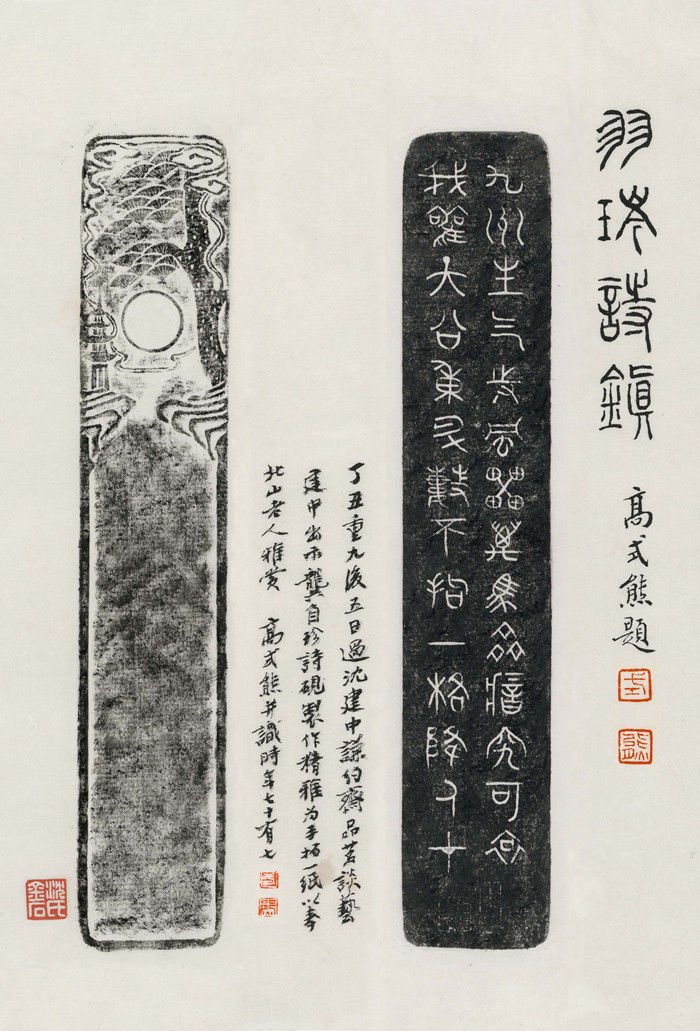 羽琌詩鎮
高式熊題
式
熊
九州生气恃風靁萬馬齊瘖究可哀
我勸天公重抖擻不拘一格降人才
丁丑重九後五日過沈建中謙約齋品茗談藝
建中出示龔自珍詩硯製作精雅為手拓一紙以奉
北山老人雅賞 高式熊并識時年七十有七
式
熊
沈氏金石